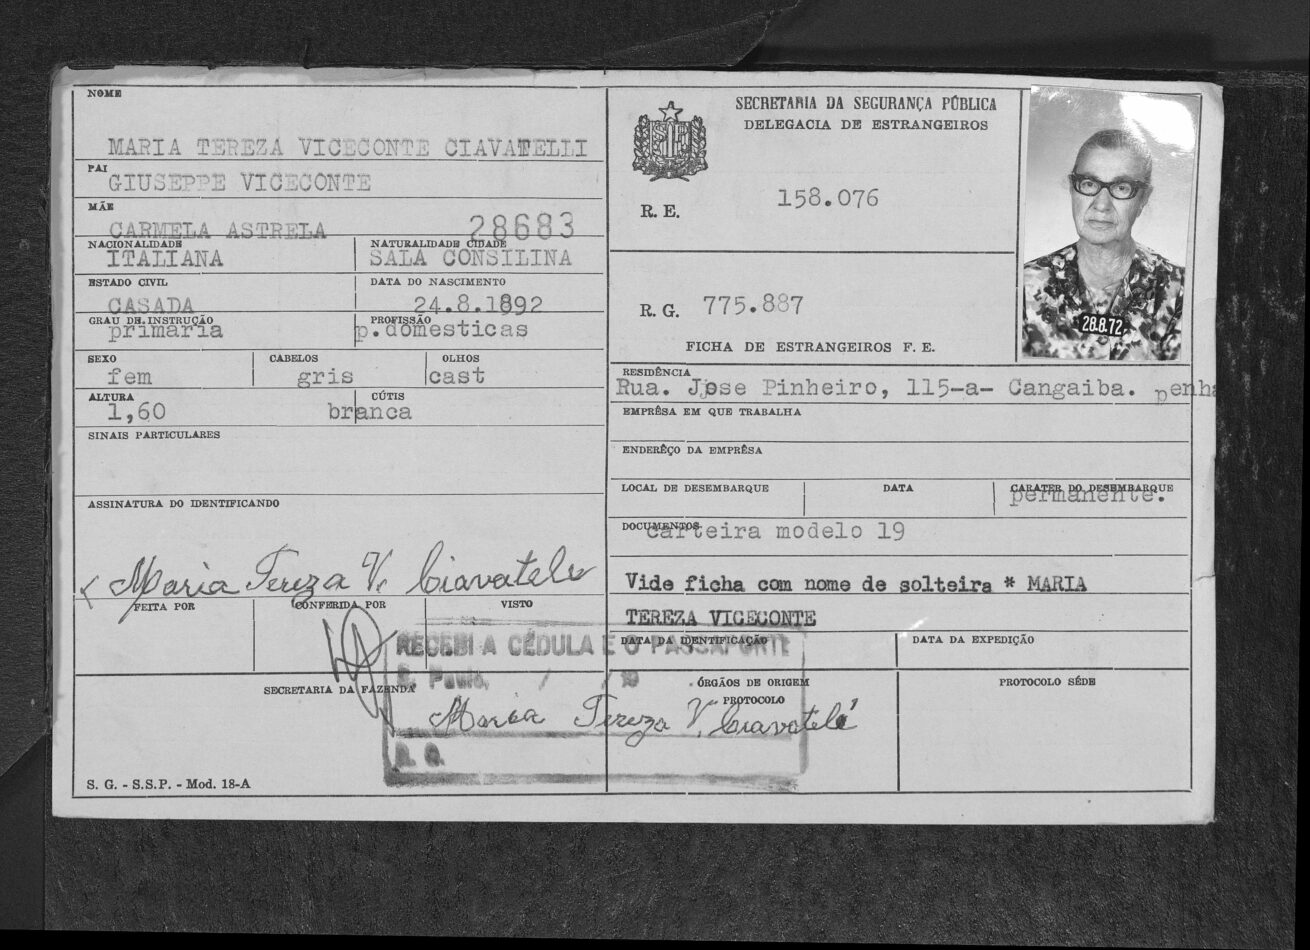 NOME
MARIA TEREZA VICECONTE CIAVATELLI
PAI
GIUSEPPE VICECONTE
MÃE
CARMELA ASTRELA 28683
NACIONALIDADE NATURALIDADE CIDADE
ITALIANA SALA CONSILINA
ESTADO CIVIL DATA DO NASCIMENTO
CASADA 24.8.1892
GRAU DE INSTRUÇÃO PROFISSÃO
primaria p.domesticas
SEXO CABELOS OLHOS
fem gris cast
ALTURA CÚTIS
1,60 branca
SINAIS PARTICULARES
ASSINATURA DO IDENTIFICANDO
Maria Tereza V. Ciavatele
FEITA POR CONFERIDA POR VISTO
SECRETARIA DA FAZENDA
S. G. - S.S.P. - Mod. 18-A
SECRETARIA DA SEGURANÇA PÚBLICA
DELEGACIA DE ESTRANGEIROS
R. E. 158.076
R. G. 775.887
FICHA DE ESTRANGEIROS F. E.
28.8.72
RESIDÊNCIA
Rua. Jose Pinheiro, 115-a- Cangaiba. penha
EMPRÊSA EM QUE TRABALHA
ENDERÊÇO DA EMPRÊSA
LOCAL DE DESEMBARQUE DATA CARATER DO DESEMBARQUE
permanente.
DOCUMENTOS
carteira modelo 19
Vide ficha com nome de solteira * MARIA
TEREZA VICECONTE
DATA DA IDENTIFICAÇÃO DATA DA EXPEDIÇÃO
RECEBI A CÉDULA E O PASSAPORTE
S. Paulo, / / 19
ÓRGÃOS DE ORIGEM PROTOCOLO SÉDE
PROTOCOLO
Maria Tereza V. Ciavatelé
R. G.